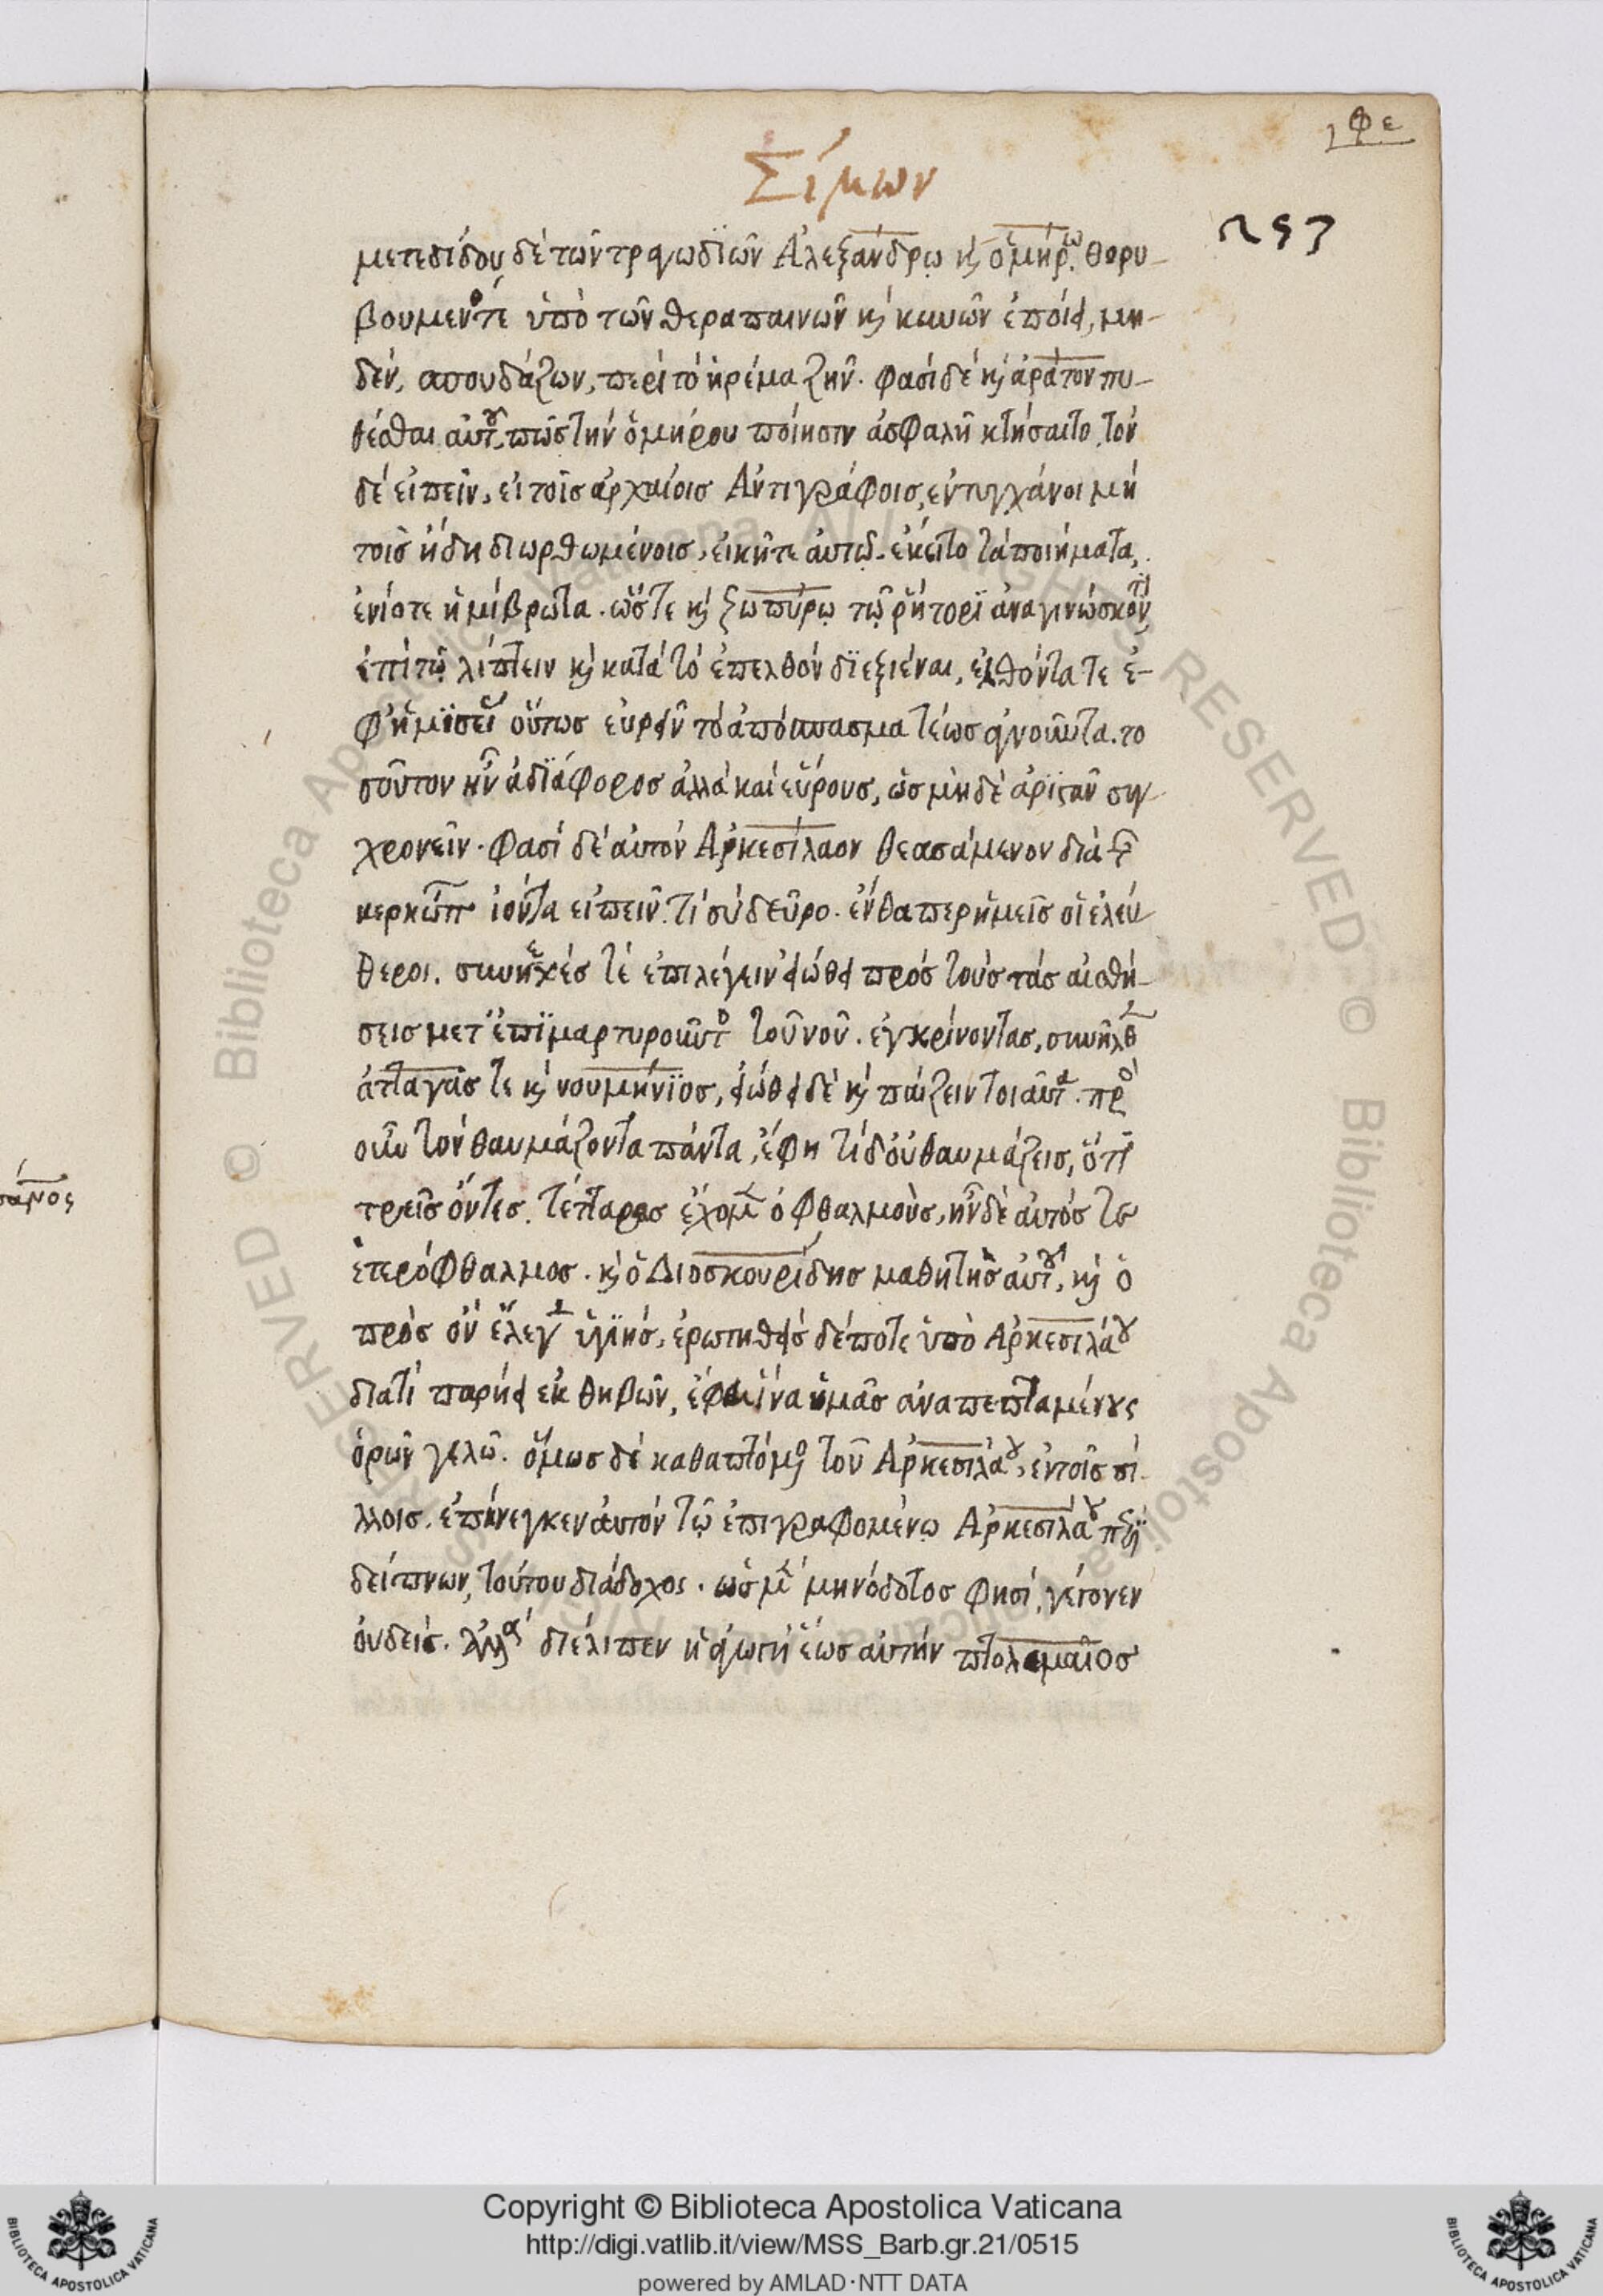 φε
Σίμων
297
μετεδίδου δὲ τῶν τραγωδϊῶν Ἀλεξάνδρω κ ὁμήρω. θορυ-
βουμενός τέ ὑπὸ τῶν θεραπαινῶν κ κυνῶν ἐποίει, μη-
δέν, σπουδάζων, περί τό ἠρέμα ζῆν. φασί δέ κ ἀράτον πυ-
θέσθαι αὐτοῦ, πῶς τήν ὁμήρου ποίησιν ἀσφαλῆ κτήσαιτο, τόν
δέ εἰπεῖν, εἰ τοῖς ἀρχαίοις Ἀντιγράφοις, εντυγχάνοι μή
τοῖς ἤδη διωρθωμένοις, εἰκῆτε ἀυτῶ. εκείτο τά ποιήματα,
ἐνίοτε ἡμίβρωτα. ὥστε κ ζωπύρω τῶ ῥήτορϊ ἀναγινώσκοντι,
ἐπί τῶ λίπτειν κ κατά τό ἐπελθόν δϊεξιέναι, ἐλθόντα τε ἐ-
φ' ἡμϊσεί οὕτως εὑρεῖν τό ἀπόσπασμα τέως ἀγνοοῦντα. το
σοῦτον ἦν ἀδϊάφορος ἀλλά καί εὔρους, ὡς μὴ δέ ἀρϊστᾶν συγ-
χρονεῖν. φασί δέ αὐτόν Ἀρκεσίλαον θεασάμενον διά τῶν
κερκώπων ἰόντα εἰπεῖν. τί σύ δεῦρο. ἔνθα περ ἡμεῖς οἱ ἐλεύ-
θεροι. συνεχές τέ ἐπιλέγειν εἰώθει πρός τούς τάς αἰσθή-
σεις μετ' ἐπϊμαρτυροῦντος τοῦ νοῦ. ἐγκρίνοντας, συνῆλθεν
ἀτταγᾶς τε κ νουμήνϊος, εἰώθει δέ κ παίζειν τοιαῦτα. πρὸς
οὖν τόν θαυμάζοντα πάντα, ἔφη τί δ' οὐ θαυμάζεις, ὅτι
τρεῖς ὄντες. τέτταρας ἔχομεν ὀφθαλμοὺς, ἦν δὲ αὐτός τε
ἑτερόφθαλμος. κ ὁ Διοσκουρίδης μαθητὴς αὐτοῦ, κ ὁ
πρὸς ὅν ἔλεγεν ὑγϊής, ἐρωτηθείς δέ ποτε ὑπὸ Ἀρκεσιλάου
διατί παρήει ἐκ θηβῶν, ἔφη ἵνα ὑμᾶς ἀναπεπταμένους
ὁρῶν γελῶ. ὅμως δέ καθαπτόμενος τοῦ Ἀρκεσιλάου, ἐν τοῖς σί-
λλοις. ἐπήνεγκεν ἀυτόν τῶ ἐπιγραφομένω Ἀρκεσιλάου περὶ
δείπνων, τούτου διάδοχος. ὡς μὲν μηνόδοτος φησί, γέγονεν
ὀυδείς. ἀλλά διέλιπεν ἡ ἀγωγή ἕως αὐτήν πτολεμαῖος
Copyright © Biblioteca Apostolica Vaticana
http://digi.vatlib.it/view/MSS_Barb.gr.21/0515
powered by AMLAD·NTT DATA